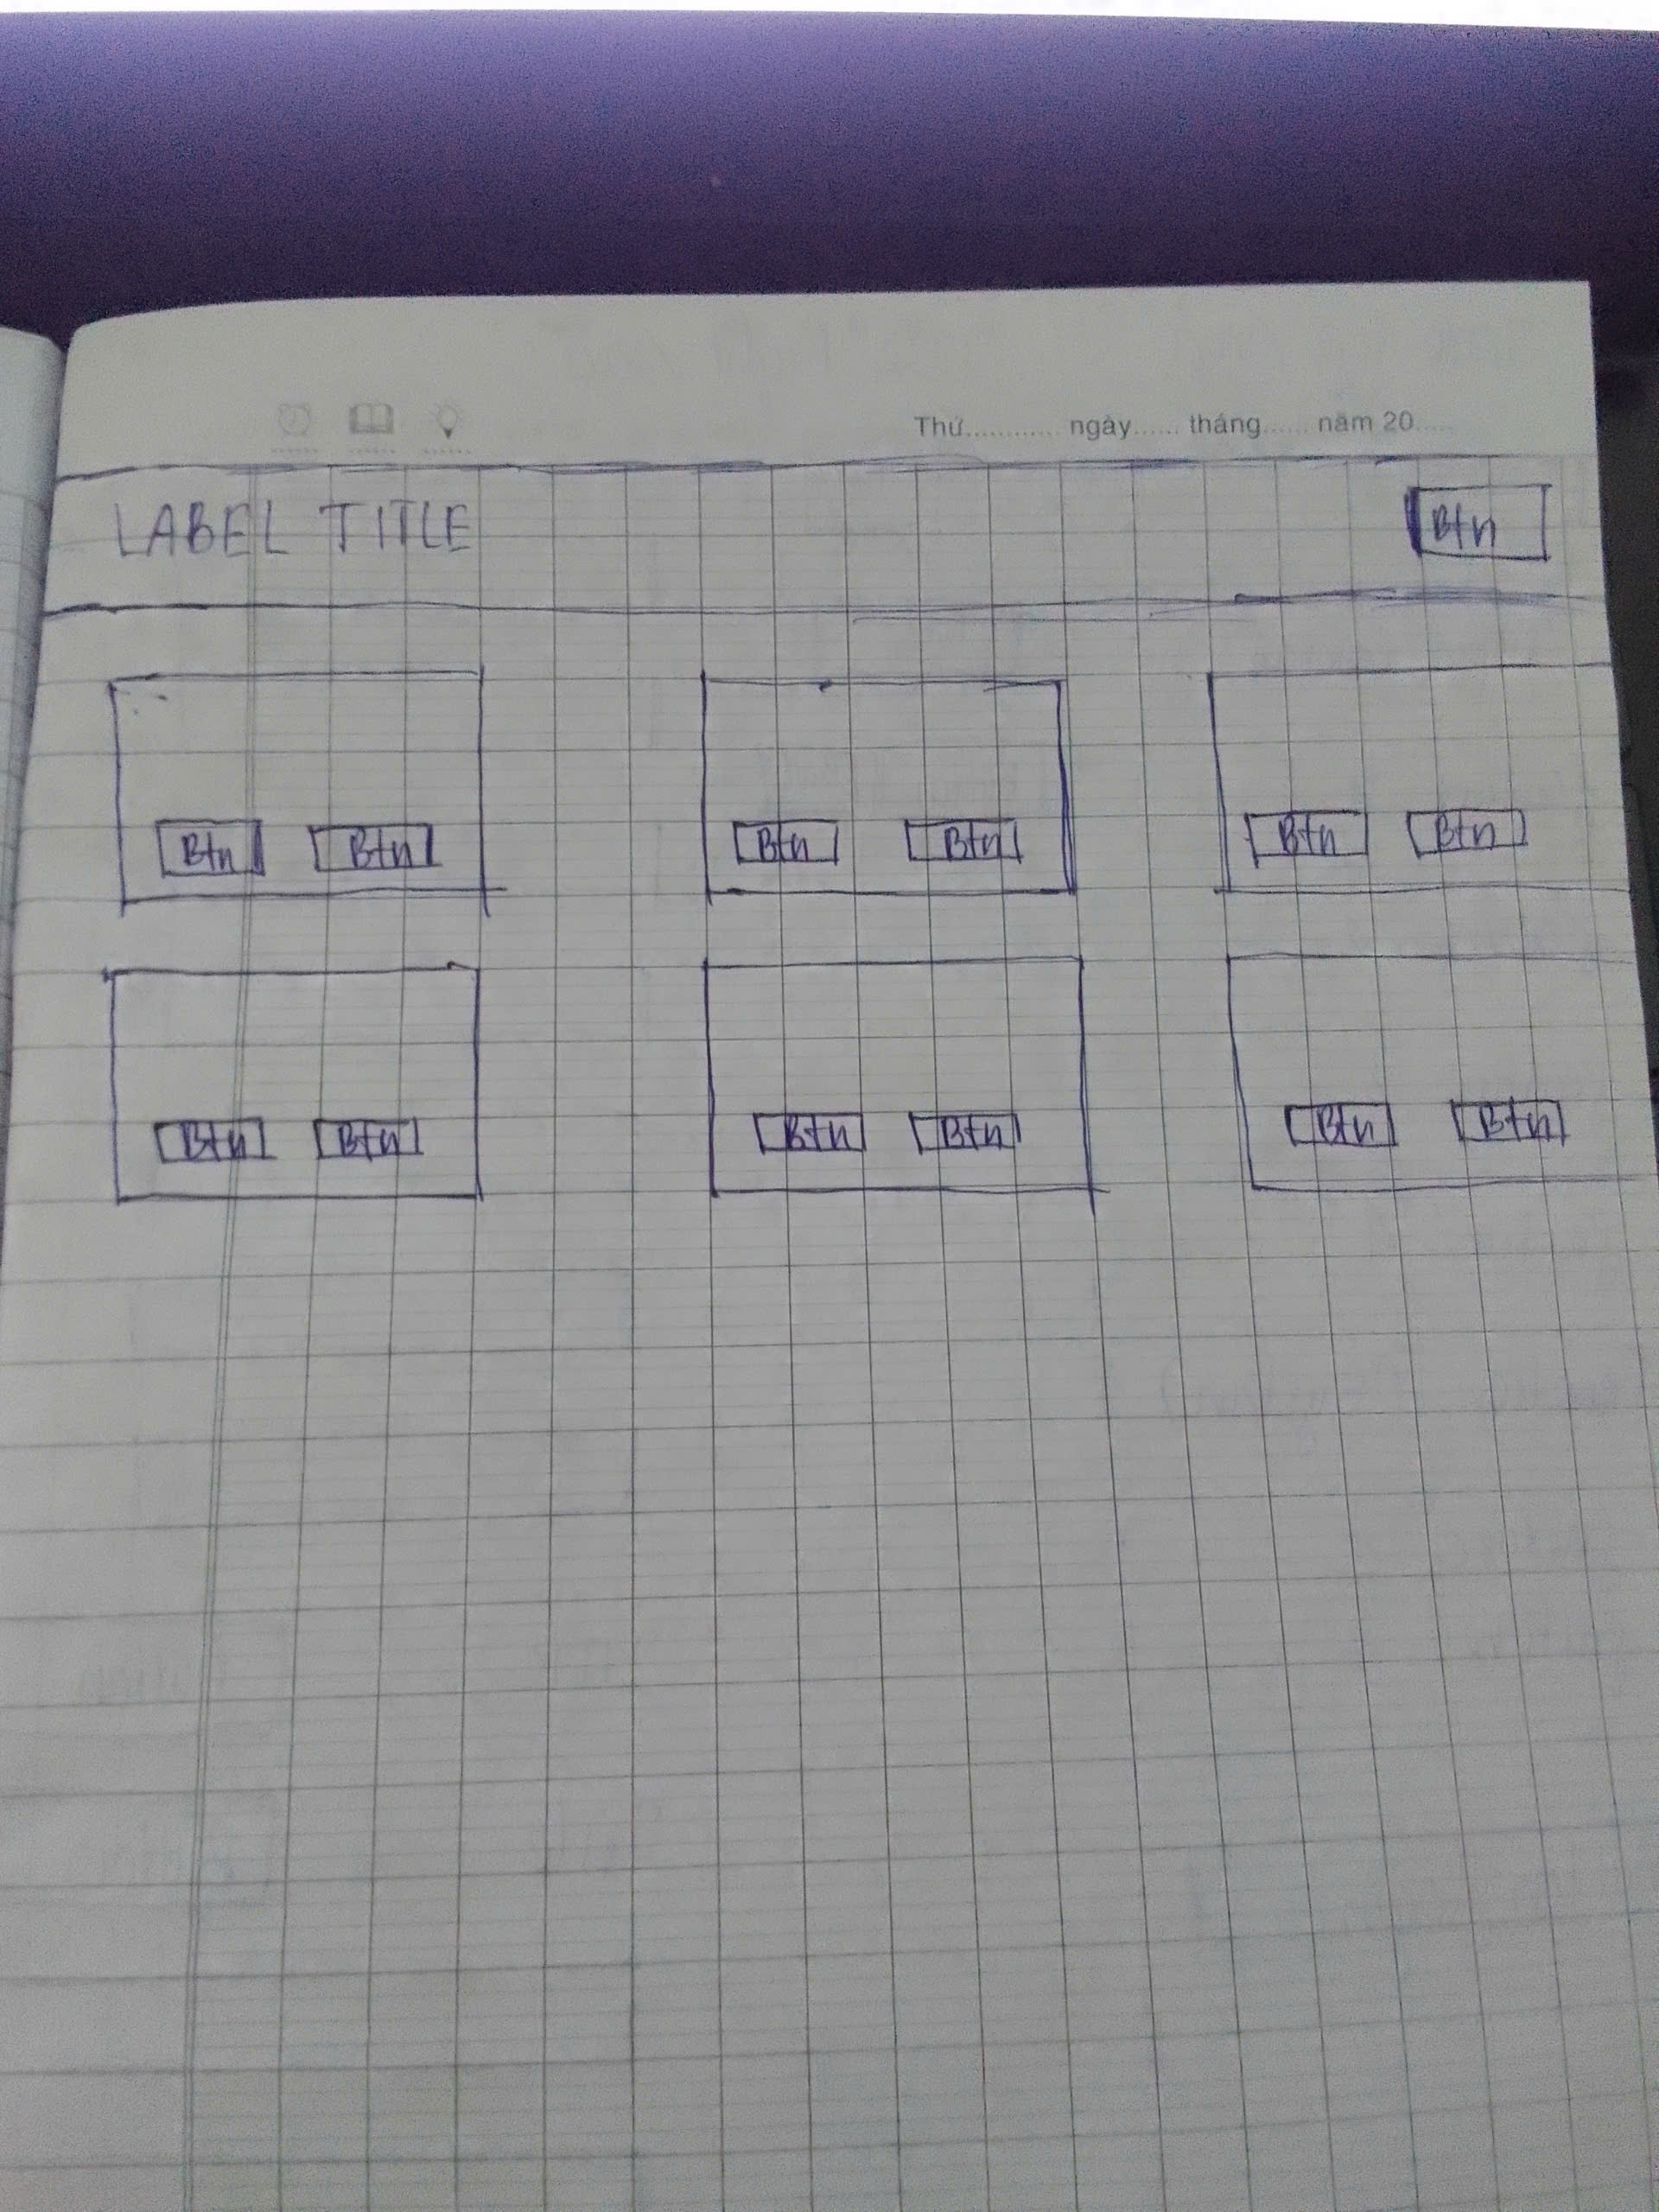 Thứ............ ngày...... tháng...... năm 20.....
LABEL TITLE Btn
Btn Btn Btn Btn Btn Btn
Btn Btn Btn Btn Btn Btn